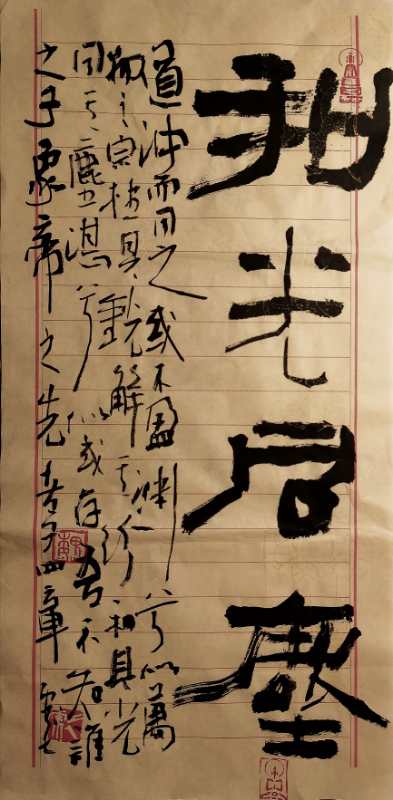 和光同塵
道沖而用之或不盈渊兮似萬
物之宗挫其銳解其紛和其光
同其塵湛兮似或存吾不知誰
之子象帝之先老子四章